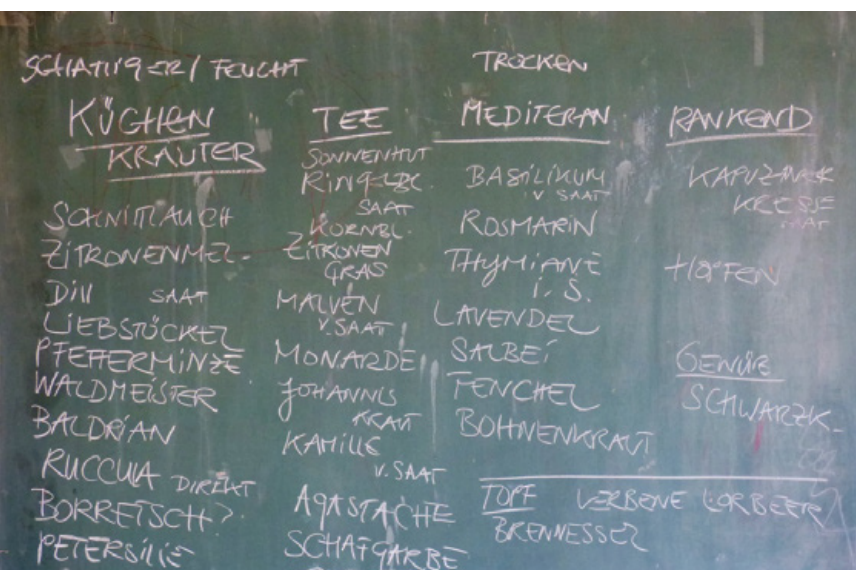 SCHATTIGER / FEUCHT
TROCKEN
KÜCHEN
KRÄUTER
SCHNITTLAUCH
ZITRONENMEL.
DILL SAAT
LIEBSTÖCKEL
PFEFFERMINZE
WALDMEISTER
BALDRIAN
RUCCULA DIREKT
BORRETSCH?
PETERSILIE
TEE
SONNENHUT
RINGELBL.
SAAT
KORNBL.
ZITRONEN
GRAS
MALVEN
V. SAAT
MONARDE
JOHANNIS
KRAUT
KAMILLE
V. SAAT
AGASTACHE
SCHAFGARBE
MEDITERAN
BASILIKUM
V SAAT
ROSMARIN
THYMIANE
i. S.
LAVENDEL
SALBEI
FENCHEL
BOHNENKRAUT
RANKEND
KAPUZINER
KRESSE
SAAT
HOPFEN
GEMÜSE
SCHWARZK.
TOPF VERBENE LORBEER
BRENNESSEL